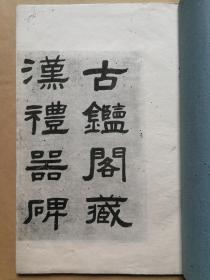 古鑑閣藏
漢禮器碑